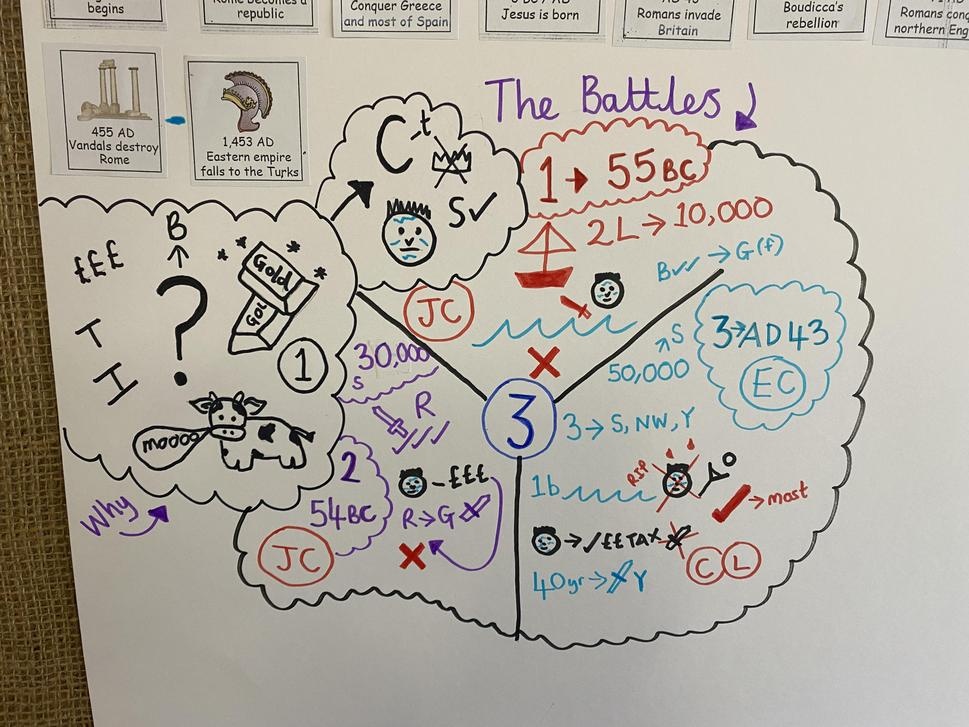 begins
Rome becomes a
republic
Conquer Greece
and most of Spain
Jesus is born
Romans invade
Britain
Boudicca's
rebellion
Romans
northern
455 AD
Vandals destroy
Rome
1,453 AD
Eastern empire
falls to the Turks
The Battles
C t
S✓
£££
B
T
I
?
Gold
1
mooo
Why
1 → 55BC
2L → 10,000
JC
B✓✓ → G(f)
3→AD43
EC
S
50,000
3
3→ S, NW, Y
30,000
S
R
2
54BC
JC
-£££
R→G
1b
RIP
→most
→ ✓££TAX
C L
40yr→ Y